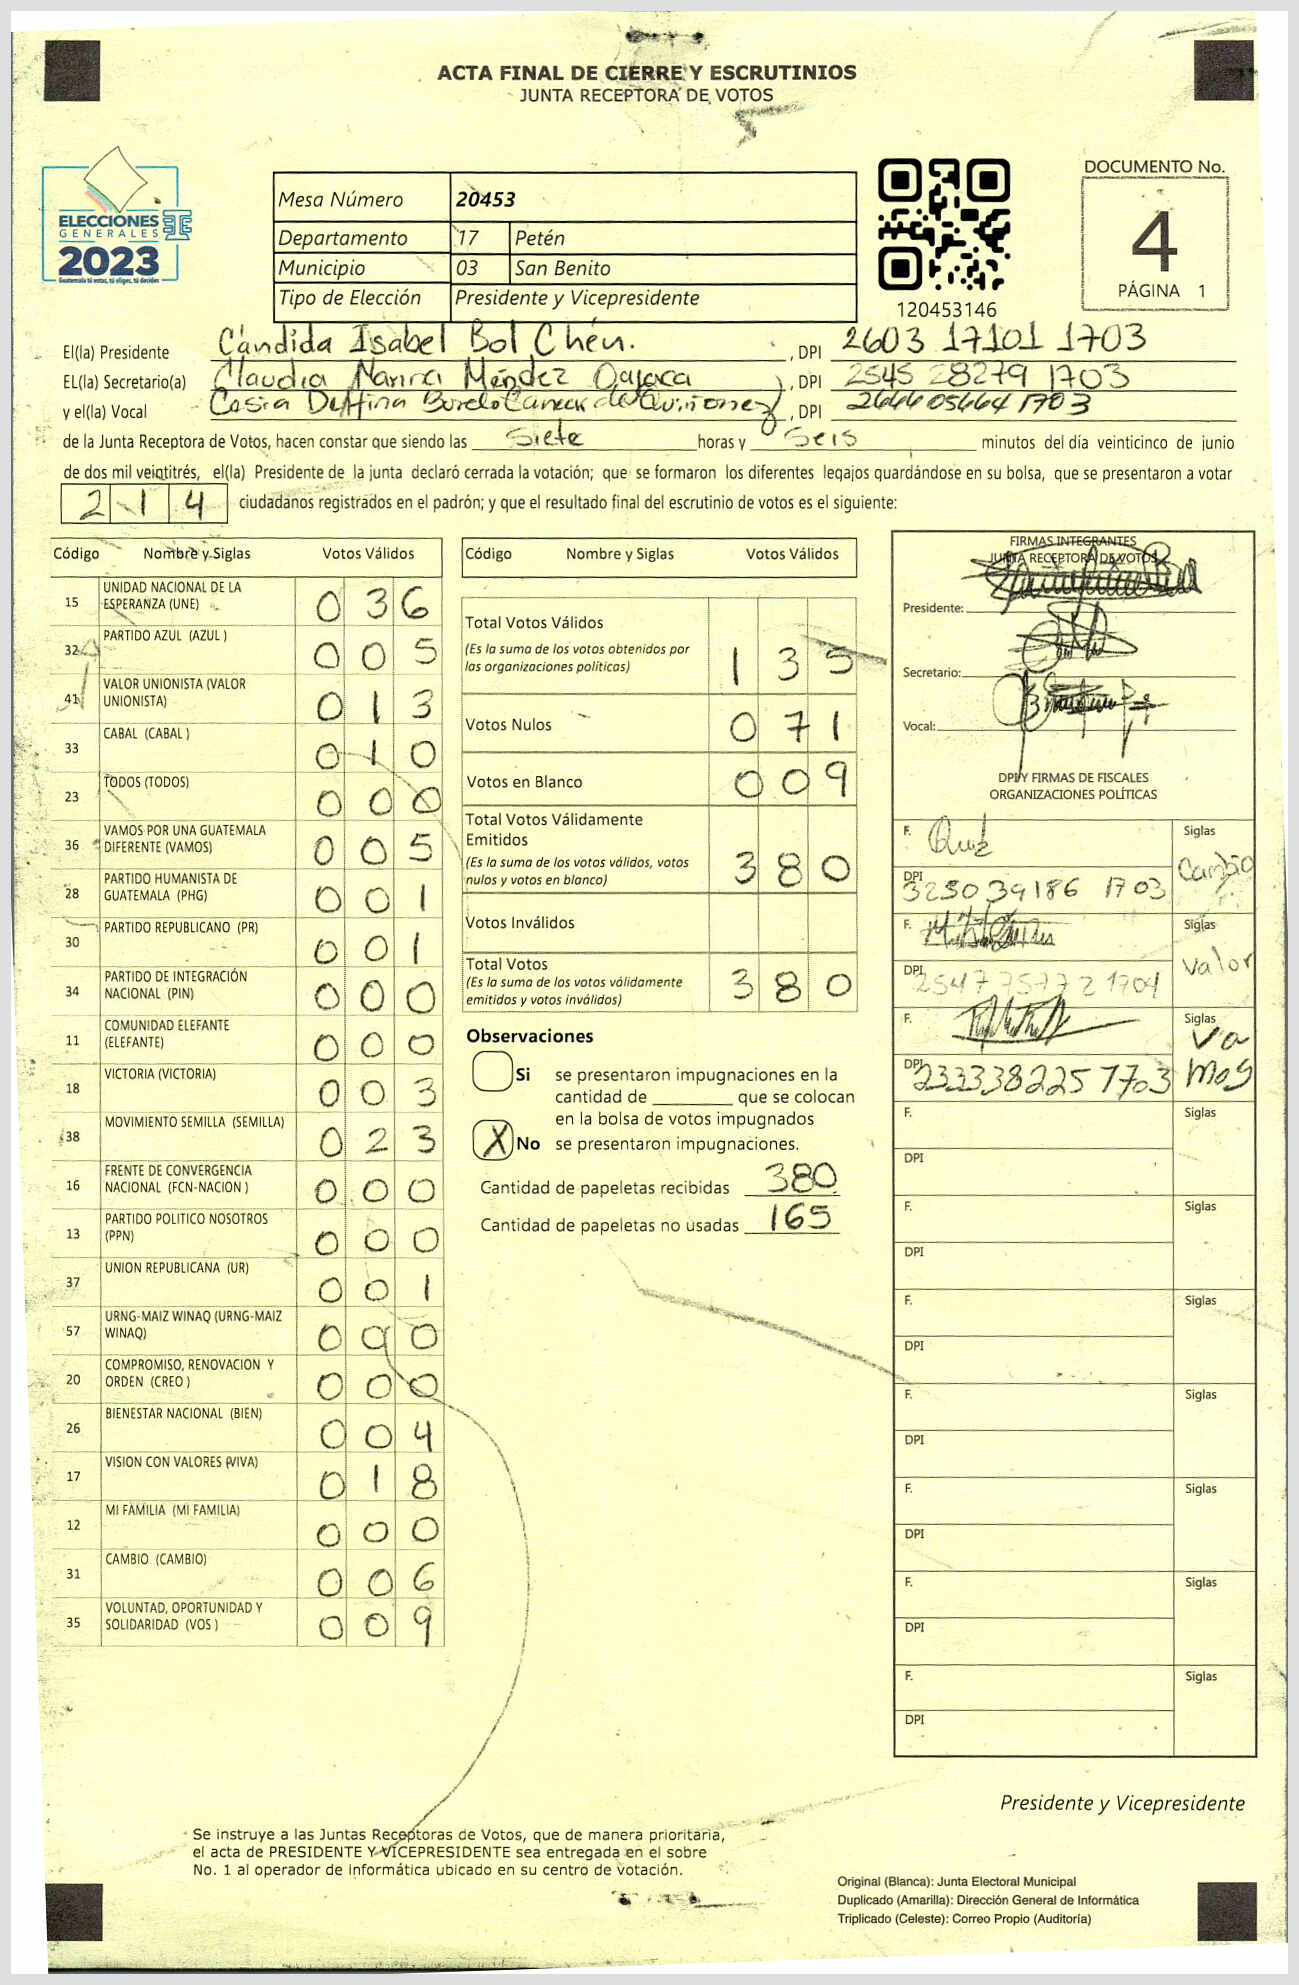 ACTA FINAL DE CIERRE Y ESCRUTINIOS
JUNTA RECEPTORA DE VOTOS
ELECCIONES
GENERALES
2023
Guatemala tú votas, tú eliges, tú decides
Mesa Número 20453
Departamento 17 Petén
Municipio 03 San Benito
Tipo de Elección Presidente y Vicepresidente
120453146
DOCUMENTO No.
4
PÁGINA 1
El(la) Presidente Cándida Isabel Bol Chén. , DPI 2603 17101 1703
EL(la) Secretario(a) Claudia Marina Méndez Oajaca , DPI 2545 28279 1703
y el(la) Vocal de Quiñonez , DPI 2644 05664 1703
de la Junta Receptora de Votos, hacen constar que siendo las Siete horas y Seis minutos del día veinticinco de junio
de dos mil veintitrés, el(la) Presidente de la junta declaró cerrada la votación; que se formaron los diferentes legajos guardándose en su bolsa, que se presentaron a votar
214 ciudadanos registrados en el padrón; y que el resultado final del escrutinio de votos es el siguiente:
Código Nombre y Siglas Votos Válidos
15 UNIDAD NACIONAL DE LA ESPERANZA (UNE) 036
32 PARTIDO AZUL (AZUL ) 005
41 VALOR UNIONISTA (VALOR UNIONISTA) 013
33 CABAL (CABAL ) 010
23 TODOS (TODOS) 000
36 VAMOS POR UNA GUATEMALA DIFERENTE (VAMOS) 005
28 PARTIDO HUMANISTA DE GUATEMALA (PHG) 001
30 PARTIDO REPUBLICANO (PR) 001
34 PARTIDO DE INTEGRACIÓN NACIONAL (PIN) 000
11 COMUNIDAD ELEFANTE (ELEFANTE) 000
18 VICTORIA (VICTORIA) 003
38 MOVIMIENTO SEMILLA (SEMILLA) 023
16 FRENTE DE CONVERGENCIA NACIONAL (FCN-NACION ) 000
13 PARTIDO POLITICO NOSOTROS (PPN) 000
37 UNION REPUBLICANA (UR) 001
57 URNG-MAIZ WINAQ (URNG-MAIZ WINAQ) 000
20 COMPROMISO, RENOVACION Y ORDEN (CREO ) 000
26 BIENESTAR NACIONAL (BIEN) 004
17 VISION CON VALORES (VIVA) 018
12 MI FAMILIA (MI FAMILIA) 000
31 CAMBIO (CAMBIO) 006
35 VOLUNTAD, OPORTUNIDAD Y SOLIDARIDAD (VOS ) 009
Código Nombre y Siglas Votos Válidos
Total Votos Válidos
(Es la suma de los votos obtenidos por
las organizaciones políticas) 135
Votos Nulos 071
Votos en Blanco 009
Total Votos Válidamente
Emitidos
(Es la suma de los votos válidos, votos
nulos y votos en blanco) 380
Votos Inválidos
Total Votos
(Es la suma de los votos válidamente
emitidos y votos inválidos) 380
Observaciones
Si se presentaron impugnaciones en la
cantidad de ________ que se colocan
en la bolsa de votos impugnados
X No se presentaron impugnaciones.
Cantidad de papeletas recibidas 380
Cantidad de papeletas no usadas 165
FIRMAS INTEGRANTES
JUNTA RECEPTORA DE VOTOS
Presidente:
Secretario:
Vocal:
DPI Y FIRMAS DE FISCALES
ORGANIZACIONES POLÍTICAS
F. Siglas
DPI 3250 39186 1703 Cambio
F. Siglas
DPI 2547 75772 1704 Valor
F. Siglas
DPI 2333382257703 Vamos
F. Siglas
DPI
F. Siglas
DPI
F. Siglas
DPI
F. Siglas
DPI
F. Siglas
DPI
F. Siglas
DPI
F. Siglas
DPI
Presidente y Vicepresidente
Se instruye a las Juntas Receptoras de Votos, que de manera prioritaria,
el acta de PRESIDENTE Y VICEPRESIDENTE sea entregada en el sobre
No. 1 al operador de Informática ubicado en su centro de votación.
Original (Blanca): Junta Electoral Municipal
Duplicado (Amarilla): Dirección General de Informática
Triplicado (Celeste): Correo Propio (Auditoría)